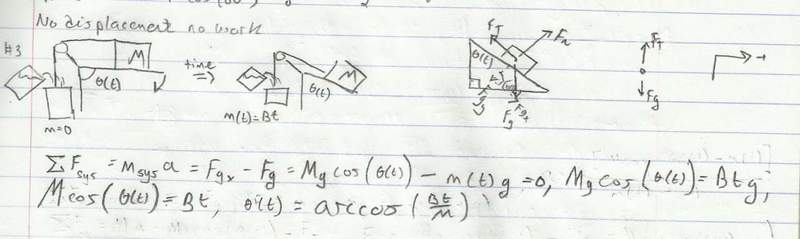 No displacement no work
#3
M
θ(t)
m=0
time
⇒
M
θ(t)
m(t)=Bt
F_T
F_n
θ(t)
F_g
F_gx
F_T
F_g
+
∑F_sys = m_sys a = F_gx - F_g = Mg cos(θ(t)) - m(t)g = 0, Mg cos(θ(t)) = Btg,
M cos(θ(t)) = Bt, θ(t) = arccos(Bt/M)